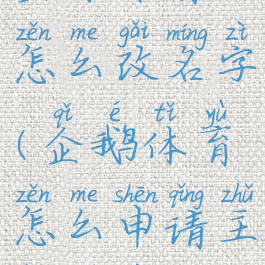 zěn me gǎi míng zì
怎么改名字
qǐ é tǐ yù
(企鹅体育
zěn me shēn qǐng zhǔ
怎么申请主